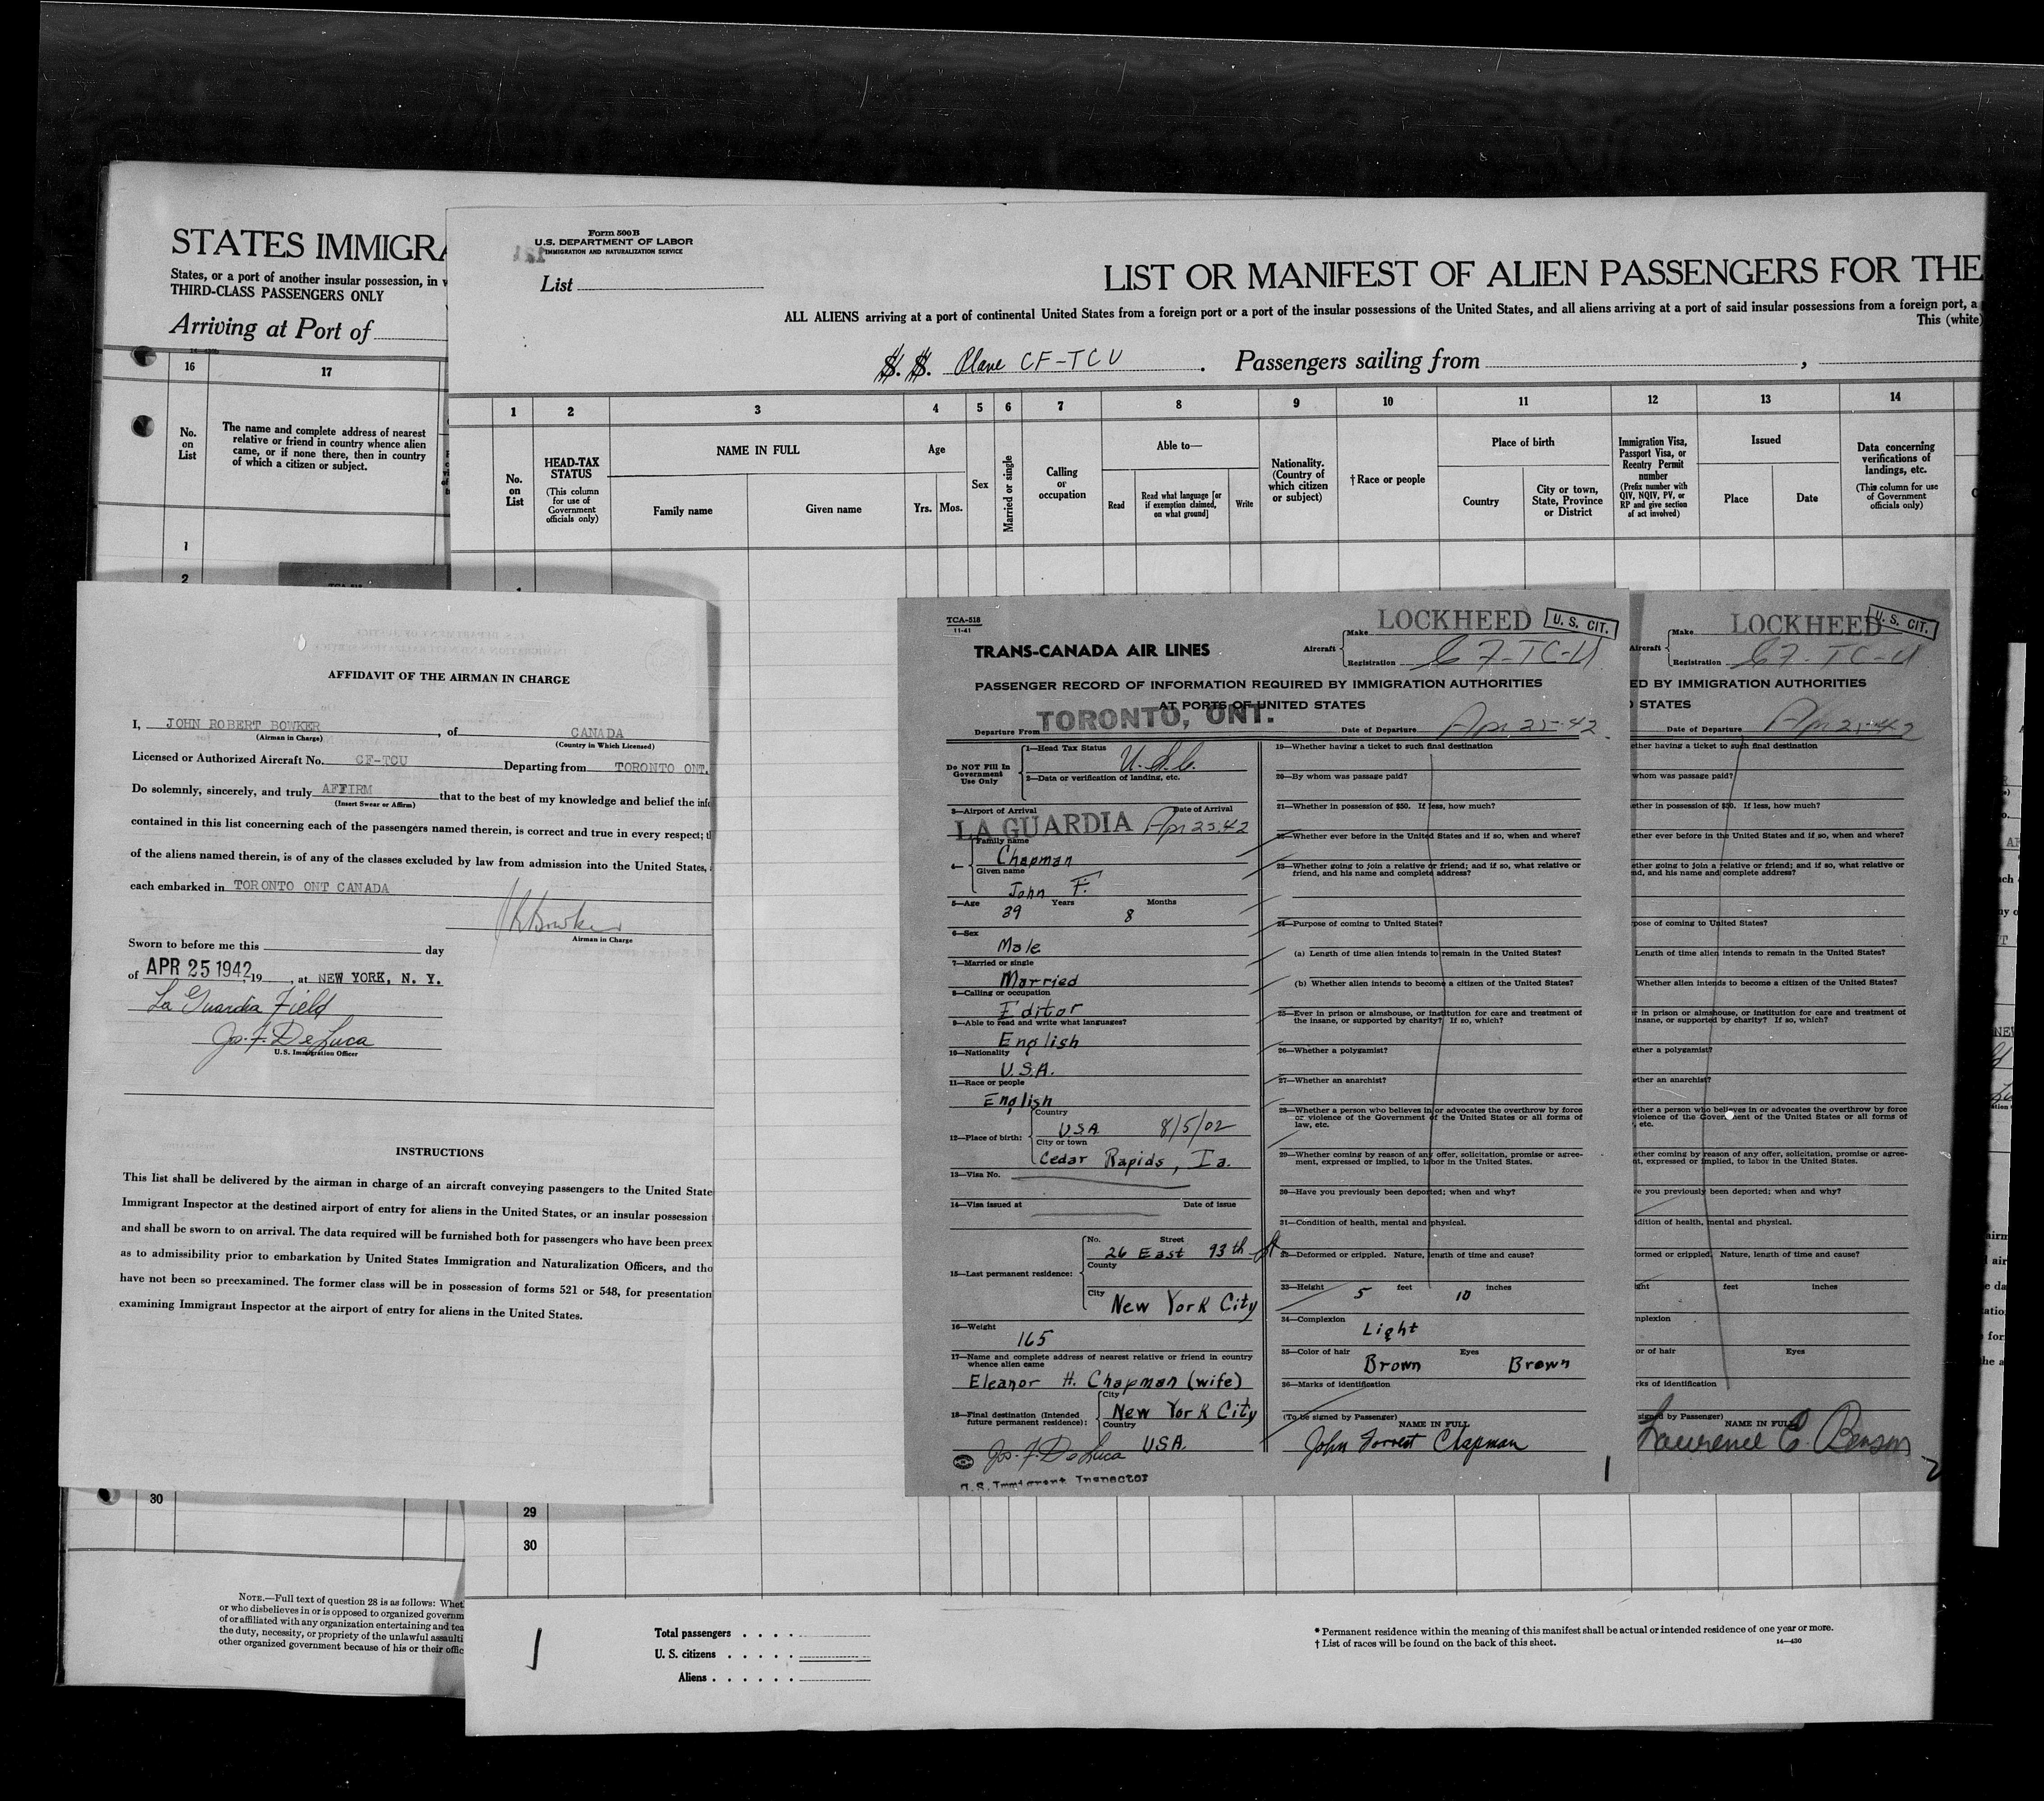 STATES IMMIGRA
States, or a port of another insular possession, in
THIRD-CLASS PASSENGERS ONLY
Arriving at Port of
16
17
No.
on
List
The name and complete address of nearest
relative or friend in country whence alien
came, or if none there, then in country
of which a citizen or subject.
1
2
30
NOTE.—Full text of question 28 is as follows: Whet
or who disbelieves in or is opposed to organized governm
of or affiliated with any organization entertaining and tea
the duty, necessity, or propriety of the unlawful assaulti
other organized government because of his or their offic
Form 500B
U.S. DEPARTMENT OF LABOR
IMMIGRATION AND NATURALIZATION SERVICE
List
LIST OR MANIFEST OF ALIEN PASSENGERS FOR THE
ALL ALIENS arriving at a port of continental United States from a foreign port or a port of the insular possessions of the United States, and all aliens arriving at a port of said insular possessions from a foreign port, a
This (white)
S. S. Plane CF-TCU . Passengers sailing from ,
1 2 3 4 5 6 7 8 9 10 11 12 13 14
No.
on
List
HEAD-TAX
STATUS
(This column
for use of
Government
officials only)
NAME IN FULL
Family name
Given name
Age
Yrs. Mos.
Sex
Married or single
Calling
or
occupation
Able to—
Read
Read what language [or
if exemption claimed,
on what ground]
Write
Nationality.
(Country of
which citizen
or subject)
†Race or people
Place of birth
Country
City or town,
State, Province
or District
Immigration Visa,
Passport Visa, or
Reentry Permit
number
(Prefix number with
QIV, NQIV, PV, or
RP and give section
of act involved)
Issued
Place
Date
Data concerning
verifications of
landings, etc.
(This column for use
of Government
officials only)
29
30
1
Total passengers
U. S. citizens
Aliens
* Permanent residence within the meaning of this manifest shall be actual or intended residence of one year or more.
† List of races will be found on the back of this sheet.
14—430
AFFIDAVIT OF THE AIRMAN IN CHARGE
I, JOHN ROBERT BOWKER , of CANADA
(Airman in Charge) (Country in Which Licensed)
Licensed or Authorized Aircraft No. CF-TCU Departing from TORONTO ONT.
Do solemnly, sincerely, and truly AFFIRM that to the best of my knowledge and belief the info
(Insert Swear or Affirm)
contained in this list concerning each of the passengers named therein, is correct and true in every respect;
of the aliens named therein, is of any of the classes excluded by law from admission into the United States,
each embarked in TORONTO ONT CANADA
JRBowker
Airman in Charge
Sworn to before me this day
of APR 25 1942, 19 , at NEW YORK, N. Y.
La Guardia Field
Jos. F. DeLuca
U.S. Immigration Officer
INSTRUCTIONS
This list shall be delivered by the airman in charge of an aircraft conveying passengers to the United State
Immigrant Inspector at the destined airport of entry for aliens in the United States, or an insular possession
and shall be sworn to on arrival. The data required will be furnished both for passengers who have been preex
as to admissibility prior to embarkation by United States Immigration and Naturalization Officers, and tho
have not been so preexamined. The former class will be in possession of forms 521 or 548, for presentation
examining Immigrant Inspector at the airport of entry for aliens in the United States.
TCA-518
11-41
TRANS-CANADA AIR LINES
Aircraft
Make LOCKHEED
U. S. CIT.
Registration CF-TC-U
PASSENGER RECORD OF INFORMATION REQUIRED BY IMMIGRATION AUTHORITIES
AT PORTS OF UNITED STATES
Departure From TORONTO, ONT.
Date of Departure Apr 25-42
Do NOT Fill In
Government
Use Only
1—Head Tax Status
U.S.C.
2—Data or verification of landing, etc.
3—Airport of Arrival Date of Arrival
LA GUARDIA Apr 25.42
4— Family name
Chapman
Given name
John F.
5—Age Years Months
39 8
6—Sex
Male
7—Married or single
Married
8—Calling or occupation
Editor
9—Able to read and write what languages?
English
10—Nationality
U.S.A.
11—Race or people
English
12—Place of birth:
Country
USA 8/5/02
City or town
Cedar Rapids, Ia.
13—Visa No.
14—Visa issued at Date of issue
15—Last permanent residence:
No. Street
26 East 93th St
County
City
New York City
16—Weight
165
17—Name and complete address of nearest relative or friend in country
whence alien came
Eleanor H. Chapman (wife)
18—Final destination (Intended
future permanent residence):
City
New York City
Country
USA.
Jos. F. DeLuca
U.S. Immigrant Inspector
19—Whether having a ticket to such final destination
20—By whom was passage paid?
21—Whether in possession of $50. If less, how much?
22—Whether ever before in the United States and if so, when and where?
23—Whether going to join a relative or friend; and if so, what relative or
friend, and his name and complete address?
24—Purpose of coming to United States?
(a) Length of time alien intends to remain in the United States?
(b) Whether alien intends to become a citizen of the United States?
25—Ever in prison or almshouse, or institution for care and treatment of
the insane, or supported by charity? If so, which?
26—Whether a polygamist?
27—Whether an anarchist?
28—Whether a person who believes in or advocates the overthrow by force
or violence of the Government of the United States or all forms of
law, etc.
29—Whether coming by reason of any offer, solicitation, promise or agree-
ment, expressed or implied, to labor in the United States.
30—Have you previously been deported; when and why?
31—Condition of health, mental and physical.
32—Deformed or crippled. Nature, length of time and cause?
33—Height 5 feet 10 inches
34—Complexion
Light
35—Color of hair Eyes
Brown Brown
36—Marks of identification
(To be signed by Passenger)
NAME IN FULL
John Forrest Chapman
1
Aircraft
Make LOCKHEED
U. S. CIT.
Registration CF-TC-U
ED BY IMMIGRATION AUTHORITIES
STATES
Date of Departure Apr 25-42
ether having a ticket to such final destination
whom was passage paid?
ether in possession of $50. If less, how much?
ether ever before in the United States and if so, when and where?
ether going to join a relative or friend; and if so, what relative or
nd, and his name and complete address?
pose of coming to United States?
Length of time alien intends to remain in the United States?
Whether alien intends to become a citizen of the United States?
r in prison or almshouse, or institution for care and treatment of
insane, or supported by charity? If so, which?
ether a polygamist?
ether an anarchist?
ether a person who believes in or advocates the overthrow by force
violence of the Government of the United States or all forms of
, etc.
ether coming by reason of any offer, solicitation, promise or agree-
nt, expressed or implied, to labor in the United States.
e you previously been deported; when and why?
dition of health, mental and physical.
formed or crippled. Nature, length of time and cause?
ght feet inches
mplexion
or of hair Eyes
rks of identification
signed by Passenger)
NAME IN FULL
Lawrence E. Benson
2